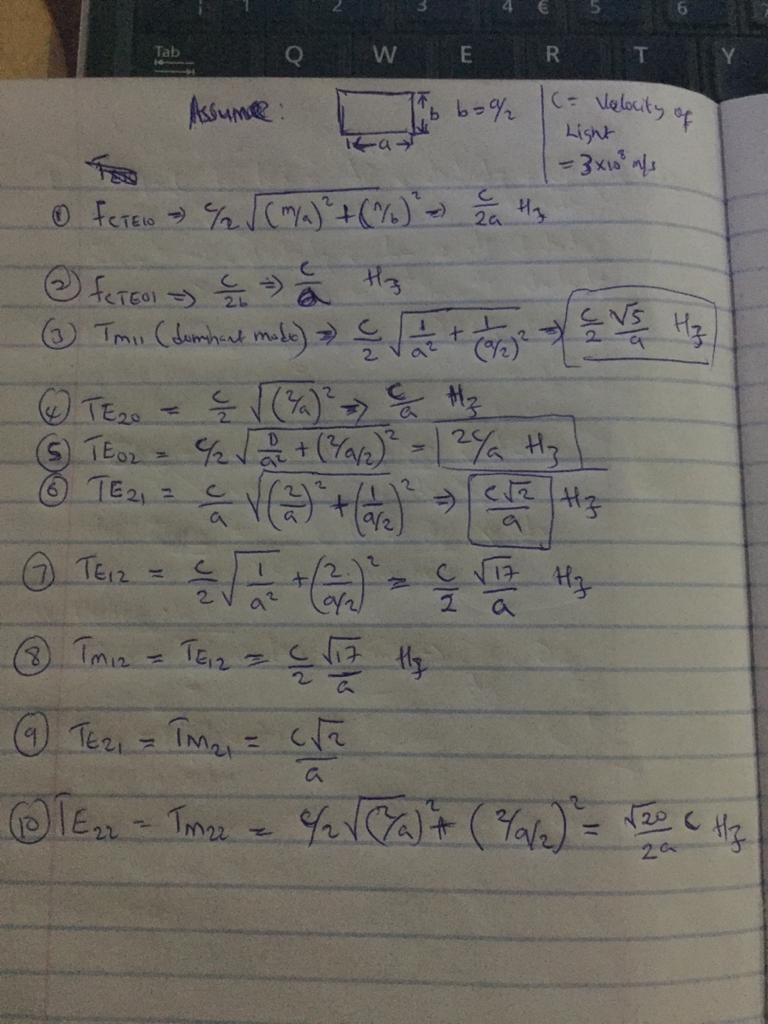 1 2 3 4 € 5 6
Tab Q W E R T Y
Assume: b b = a/2 C = Velocity of
a Light
= 3×10⁸ m/s
① fCTE10 ⇒ c/2 √(m/a)² + (n/b)² ⇒ c/2a Hz
② fCTE01 ⇒ c/2b ⇒ c/a Hz
③ TM11 (dominant mode) ⇒ c/2 √1/a² + 1/(a/2)² ⇒ c/2 √5/a Hz
④ TE20 = c/2 √(2/a)² ⇒ c/a Hz
⑤ TE02 = c/2 √0/a² + (2/a/2)² = 2c/a Hz
⑥ TE21 = c/a √(2/a)² + (1/a/2)² ⇒ c√2/a Hz
⑦ TE12 = c/2 √1/a² + (2/a/2)² = c/2 √17/a Hz
⑧ TM12 = TE12 = c/2 √17/a Hz
⑨ TE21 = TM21 = c√2/a
⑩ TE22 = TM22 = c/2 √(2/a)² + (2/a/2)² = √20/2a c Hz